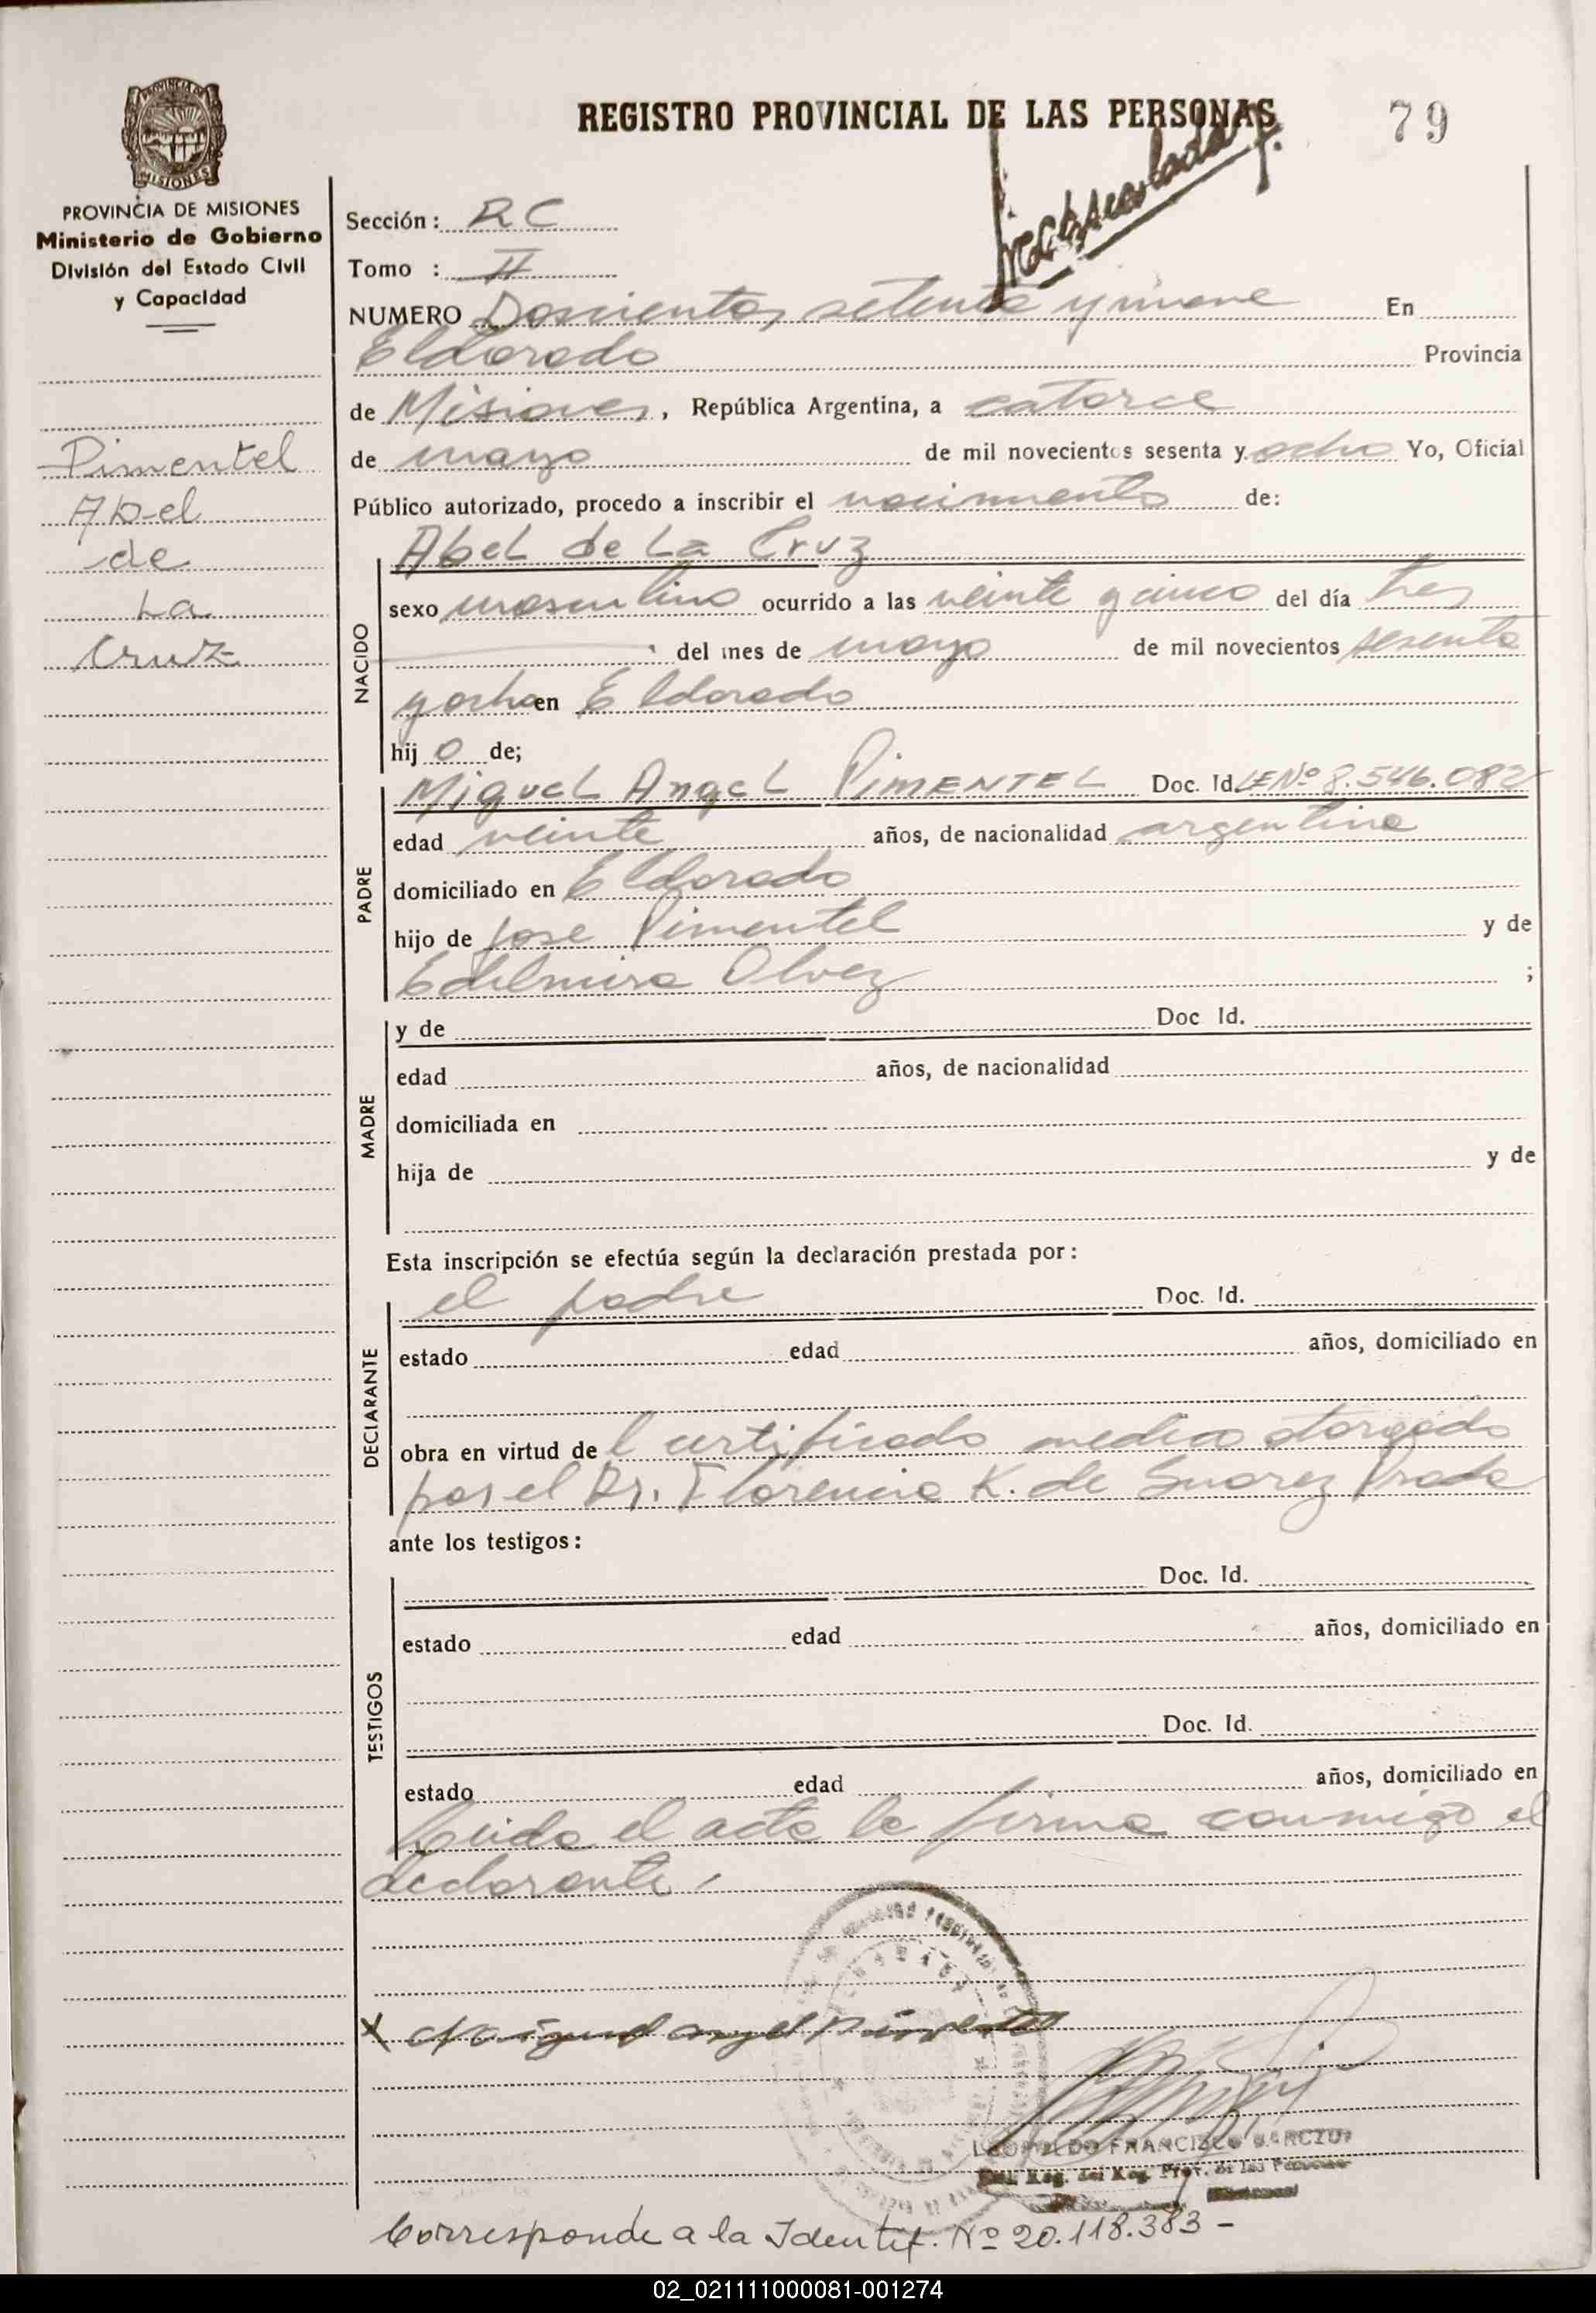 REGISTRO PROVINCIAL DE LAS PERSONAS
79
PROVINCIA DE MISIONES
Ministerio de Gobierno
División del Estado Civil
y Capacidad
Pimentel
Abel
de
La
Cruz
Sección: RC
Tomo : II
NUMERO Doscientos setenta y nueve En
Eldorado Provincia
de Misiones, República Argentina, a catorce
de mayo de mil novecientos sesenta y ocho Yo, Oficial
Público autorizado, procedo a inscribir el nacimiento de:
NACIDO
Abel de La Cruz
sexo masculino ocurrido a las veinte y cinco del día tres
del mes de mayo de mil novecientos sesenta
y ocho en Eldorado
hij o de;
PADRE
Miguel Angel PIMENTEL Doc. Id. LE Nº 8.546.082
edad veinte años, de nacionalidad argentina
domiciliado en Eldorado
hijo de Jose Pimentel y de
Edelmira Olvez ;
MADRE
y de Doc Id.
edad años, de nacionalidad
domiciliada en
hija de y de
Esta inscripción se efectúa según la declaración prestada por:
DECLARANTE
el padre Doc. Id.
estado edad años, domiciliado en
obra en virtud del certificado medico otorgado
por el Dr. Florencia K. de Suarez Prada
ante los testigos:
TESTIGOS
Doc. Id.
estado edad años, domiciliado en
Doc. Id.
estado edad años, domiciliado en
Leida el acta la firma conmigo el
declarante.
x Miguel angel Pimentel
LEOPOLDO FRANCISCO
Reg. del Reg. Prov. de las Personas
Corresponde a la Identif. Nº 20.118.383 -
02_021111000081-001274